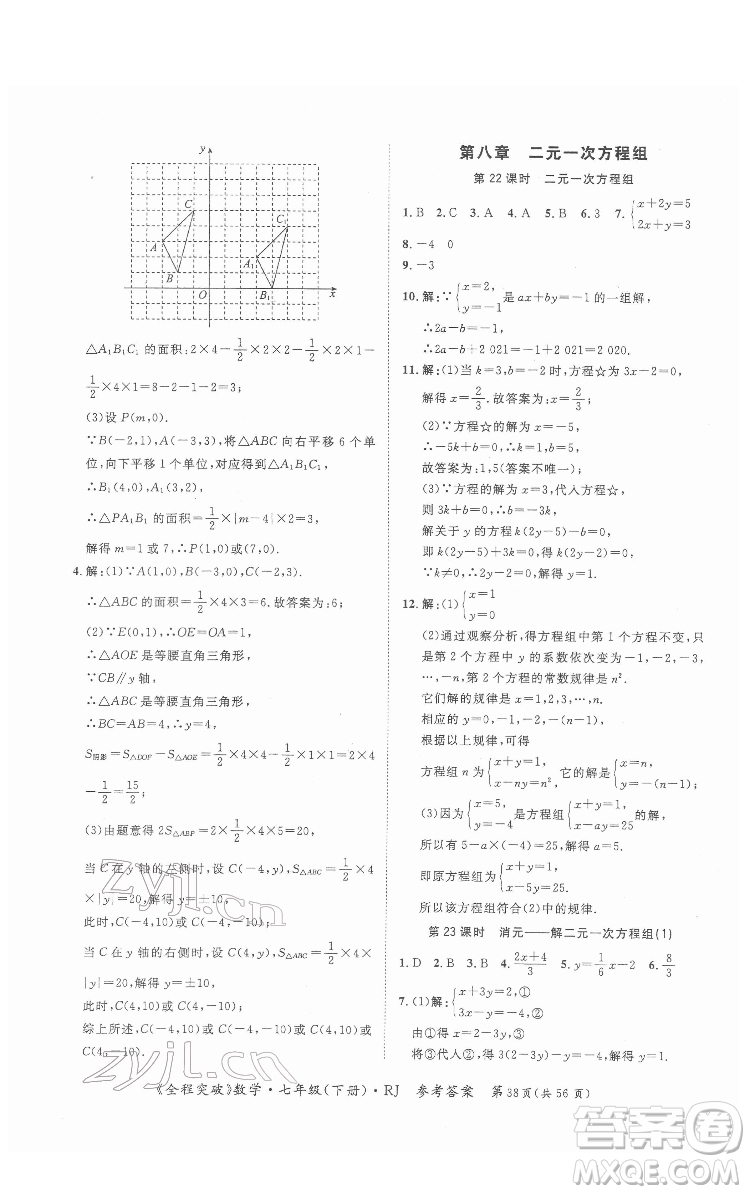 y
C
C₁
A
A₁
B
O
B₁
x
△A₁B₁C₁ 的面积:2×4-1/2×2×2-1/2×2×1-
1/2×4×1=8-2-1-2=3;
(3)设 P(m,0).
∵B(-2,1),A(-3,3),将△ABC向右平移 6 个单
位,向下平移 1 个单位,对应得到△A₁B₁C₁,
∴B₁(4,0),A₁(3,2),
∴△PA₁B₁ 的面积=1/2×|m-4|×2=3,
解得 m=1 或 7,∴P(1,0)或(7,0).
4.解:(1)∵A(1,0),B(-3,0),C(-2,3),
∴△ABC的面积=1/2×4×3=6.故答案为:6;
(2)∵E(0,1),∴OE=OA=1,
∴△AOE 是等腰直角三角形,
∵CB∥y 轴,
∴△ABC 是等腰直角三角形,
∴BC=AB=4,
S阴影=S△DOF-S△AOE=1/2×4×4-1/2×1×1=2×4
-1/2=15/2;
(3)由题意得 2S△ABP=2×1/2×4×5=20,
当 C 在 y 轴的左侧时,设 C(-4,y),S△ABC=1/2×4
×|y|=20,解得 y=±10,
此时,C(-4,10)或 C(-4,-10);
当 C 在 y 轴的右侧时,设 C(4,y),S△ABC=1/2×4×
|y|=20,解得 y=±10,
此时,C(4,10)或 C(4,-10);
综上所述,C(4,10)或 C(-4,10)或 C(-4,-10)或
C(4,-10).
第八章 二元一次方程组
第 22 课时 二元一次方程组
1.B 2.C 3.A 4.A 5.B 6.3 7.{x+2y=5 2x+y=3
8.-4 0
9.-3
10.解:∵{x=2, y=-1 是 ax+by=-1 的一组解,
∴2a-b=-1,
∴2a-b+2 021=-1+2 021=2 020.
11.解:(1)当 k=3,b=-2 时,方程☆为 3x-2=0,
解得 x=2/3.故答案为:x=2/3;
(2)∵方程☆的解为 x=-5,
∴-5k+b=0,∴b=5k,
故答案为:1,5(答案不唯一);
(3)∵方程的解为 x=3,代入方程☆,
则 3k+b=0,∴b=-3k,
解关于 y 的方程:k(2y-5)-b=0,
即 k(2y-5)=b=-3k,
∵k≠0,∴2y-5=-3,解得 y=1.
12.解:(1){x=1 y=0
(2)通过观察分析,得方程组中第 1 个方程不变,只
是第 2 个方程中 y 的系数依次变为-1,-2,-3,
…,-n.第 2 个方程的常数规律是 n².
它们解的规律是 x=1,2,3,…,n.
相应的 y=0,-1,-2,…,-(n-1).
根据以上规律,可得
方程组 n 为{x+y=1, x-ny=n², 它的解是{x=n, y=-(n-1)
(3)因为{x=5, y=-4 是方程组{x+y=1, x-ay=25 的解,
所以有 5-a×(-4)=25.解得 a=5.
即原方程组为{x+y=1, x-5y=25.
所以该方程组符合(2)中的规律.
第 23 课时 消元——解二元一次方程组(1)
1.D 2.B 3.B 4.2x+4/3 5.y=1/6x-2 6.8/3
7.(1)解:{x+3y=2,① 3x-4y=-7,②
由①得 x=2-3y③,
将③代入②,得 3(2-3y)-4y=-7,
《全程突破》数学·七年级(下册)·RJ 参考答案 第38页(共 56 页)
zyjl.cn
zyjl.cn
答案圈
MXQE.COM